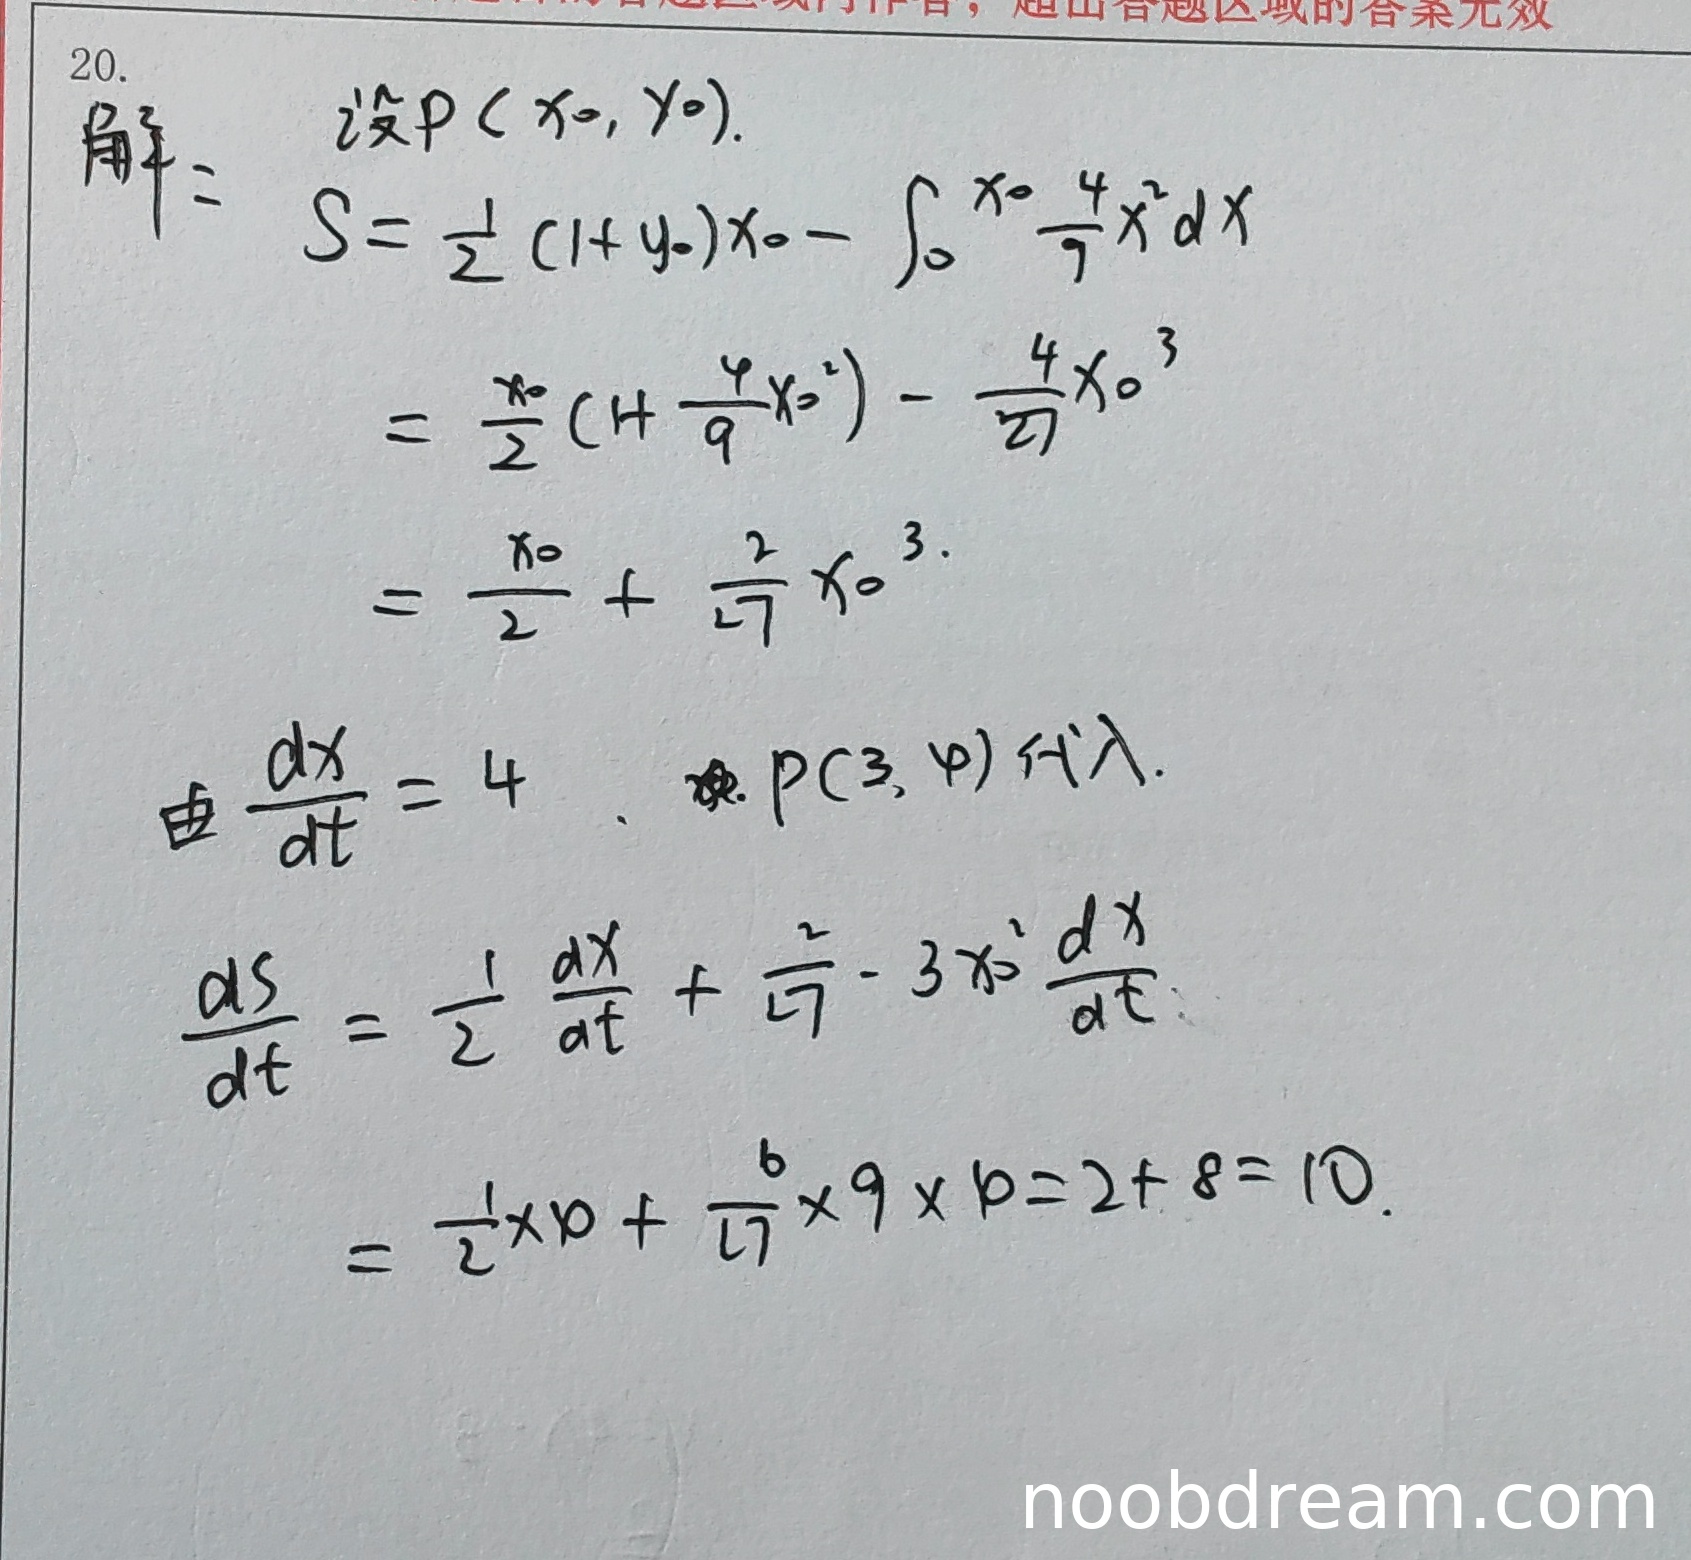 超出答题区域的答案无效
20.
解: 设P(x₀, y₀).
S = 1/2 (1+y₀)x₀ - ∫₀^x₀ 4/9 x² dx
= x₀/2 (1+ 4/9 x₀²) - 4/27 x₀³
= x₀/2 + 2/27 x₀³.
由 dx/dt = 4 . P(3, 4) 代入.
ds/dt = 1/2 dx/dt + 2/27 · 3x₀² dx/dt.
= 1/2 × 4 + 6/27 × 9 × 4 = 2 + 8 = 10.
noobdream.com